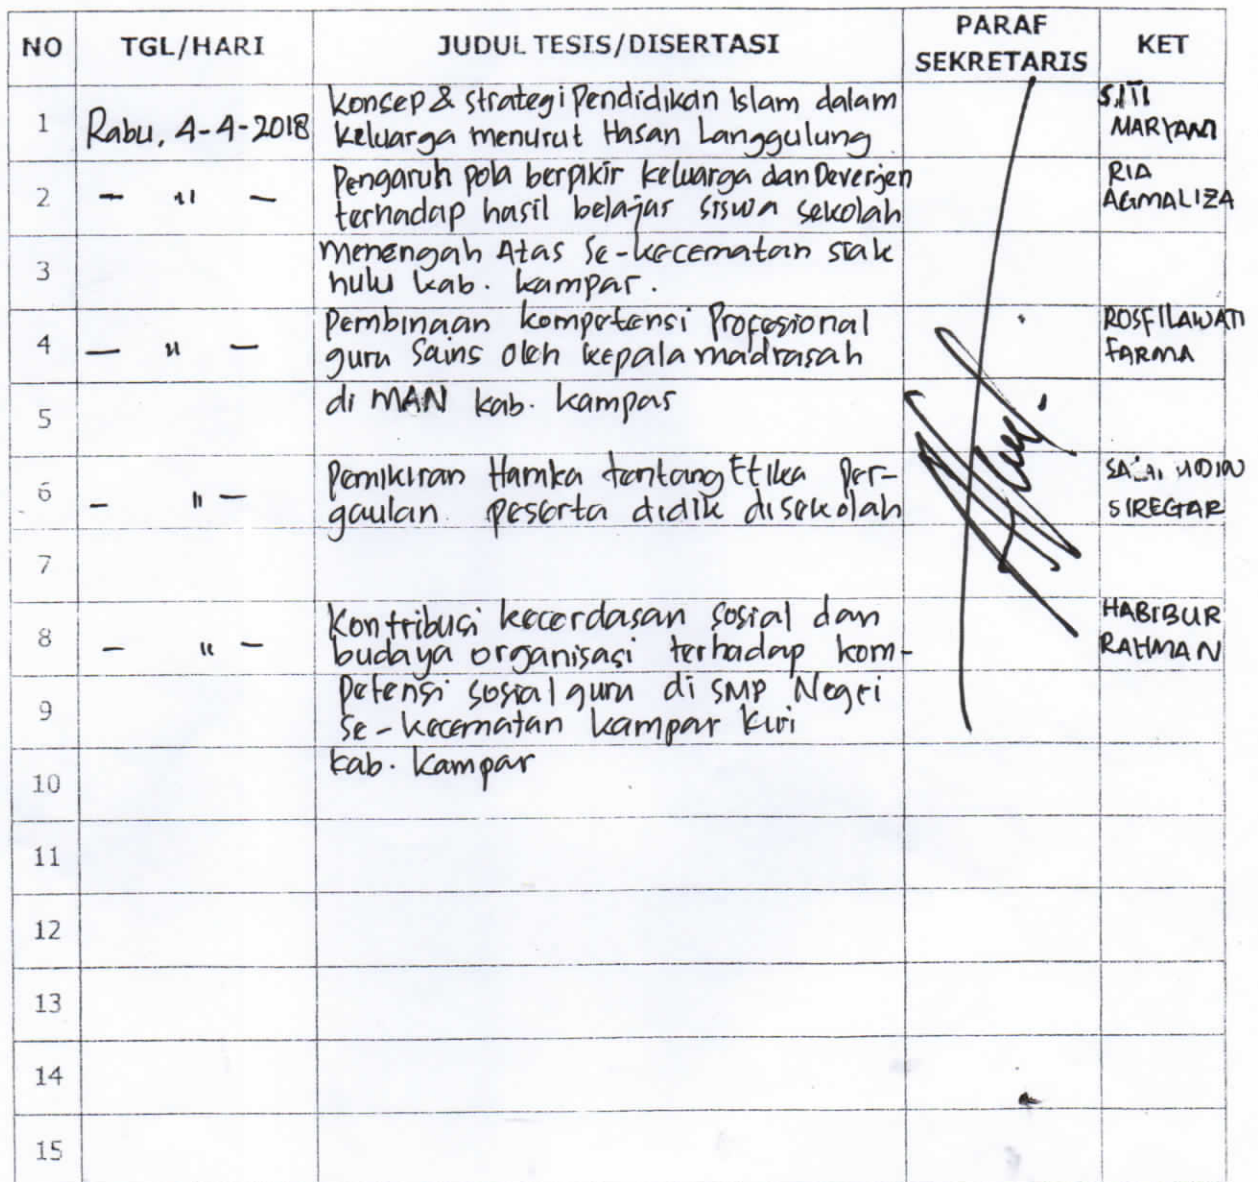 NO TGL/HARI JUDUL TESIS/DISERTASI PARAF SEKRETARIS KET
1 Rabu, 4-4-2018 Konsep & strategi Pendidikan Islam dalam SITI
keluarga menurut Hasan Langgulung MARYANI
2 — " — Pengaruh pola berpikir keluarga dan Deverjen RIA
terhadap hasil belajar siswa sekolah AGMALIZA
3 menengah Atas Se-kecematan siak
hulu kab. kampar.
4 — " — Pembinaan kompetensi Profesional ROSFILAWATI
guru Sains oleh kepala madrasah FARMA
5 di MAN kab. kampar
6 — " — Pemikiran Hamka tentang Etika Per-
gaulan peserta didik disekolah SIREGAR
7
8 — " — Kontribusi kecerdasan sosial dan HABIBUR
budaya organisasi terhadap kom- RAHMAN
9 petensi sosial guru di SMP Negri
Se-kecematan kampar kiri
10 kab. kampar
11
12
13
14
15